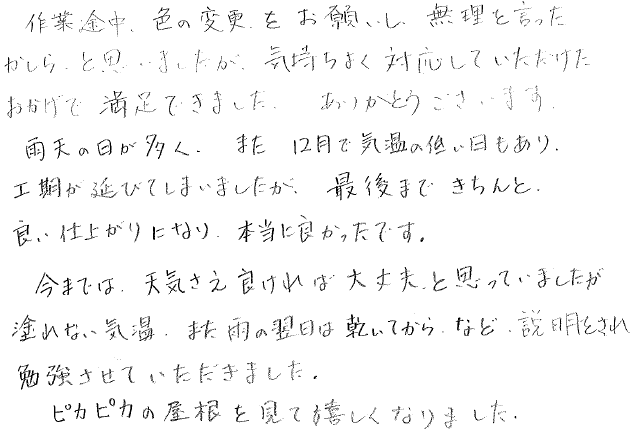 作業途中、色の変更をお願いし、無理を言った
かしら、と思いましたが、気持ちよく対応していただけた
おかげで満足できました。ありがとうございます。
雨天の日が多く、また12月で気温の低い日もあり、
工期が延びてしまいましたが、最後まできちんと、
良い仕上がりになり、本当に良かったです。
今までは、天気さえ良ければ大丈夫、と思っていましたが
塗れない気温、また雨の翌日は乾いてから、など、説明をされ
勉強させていただきました。
ピカピカの屋根を見て嬉しくなりました。